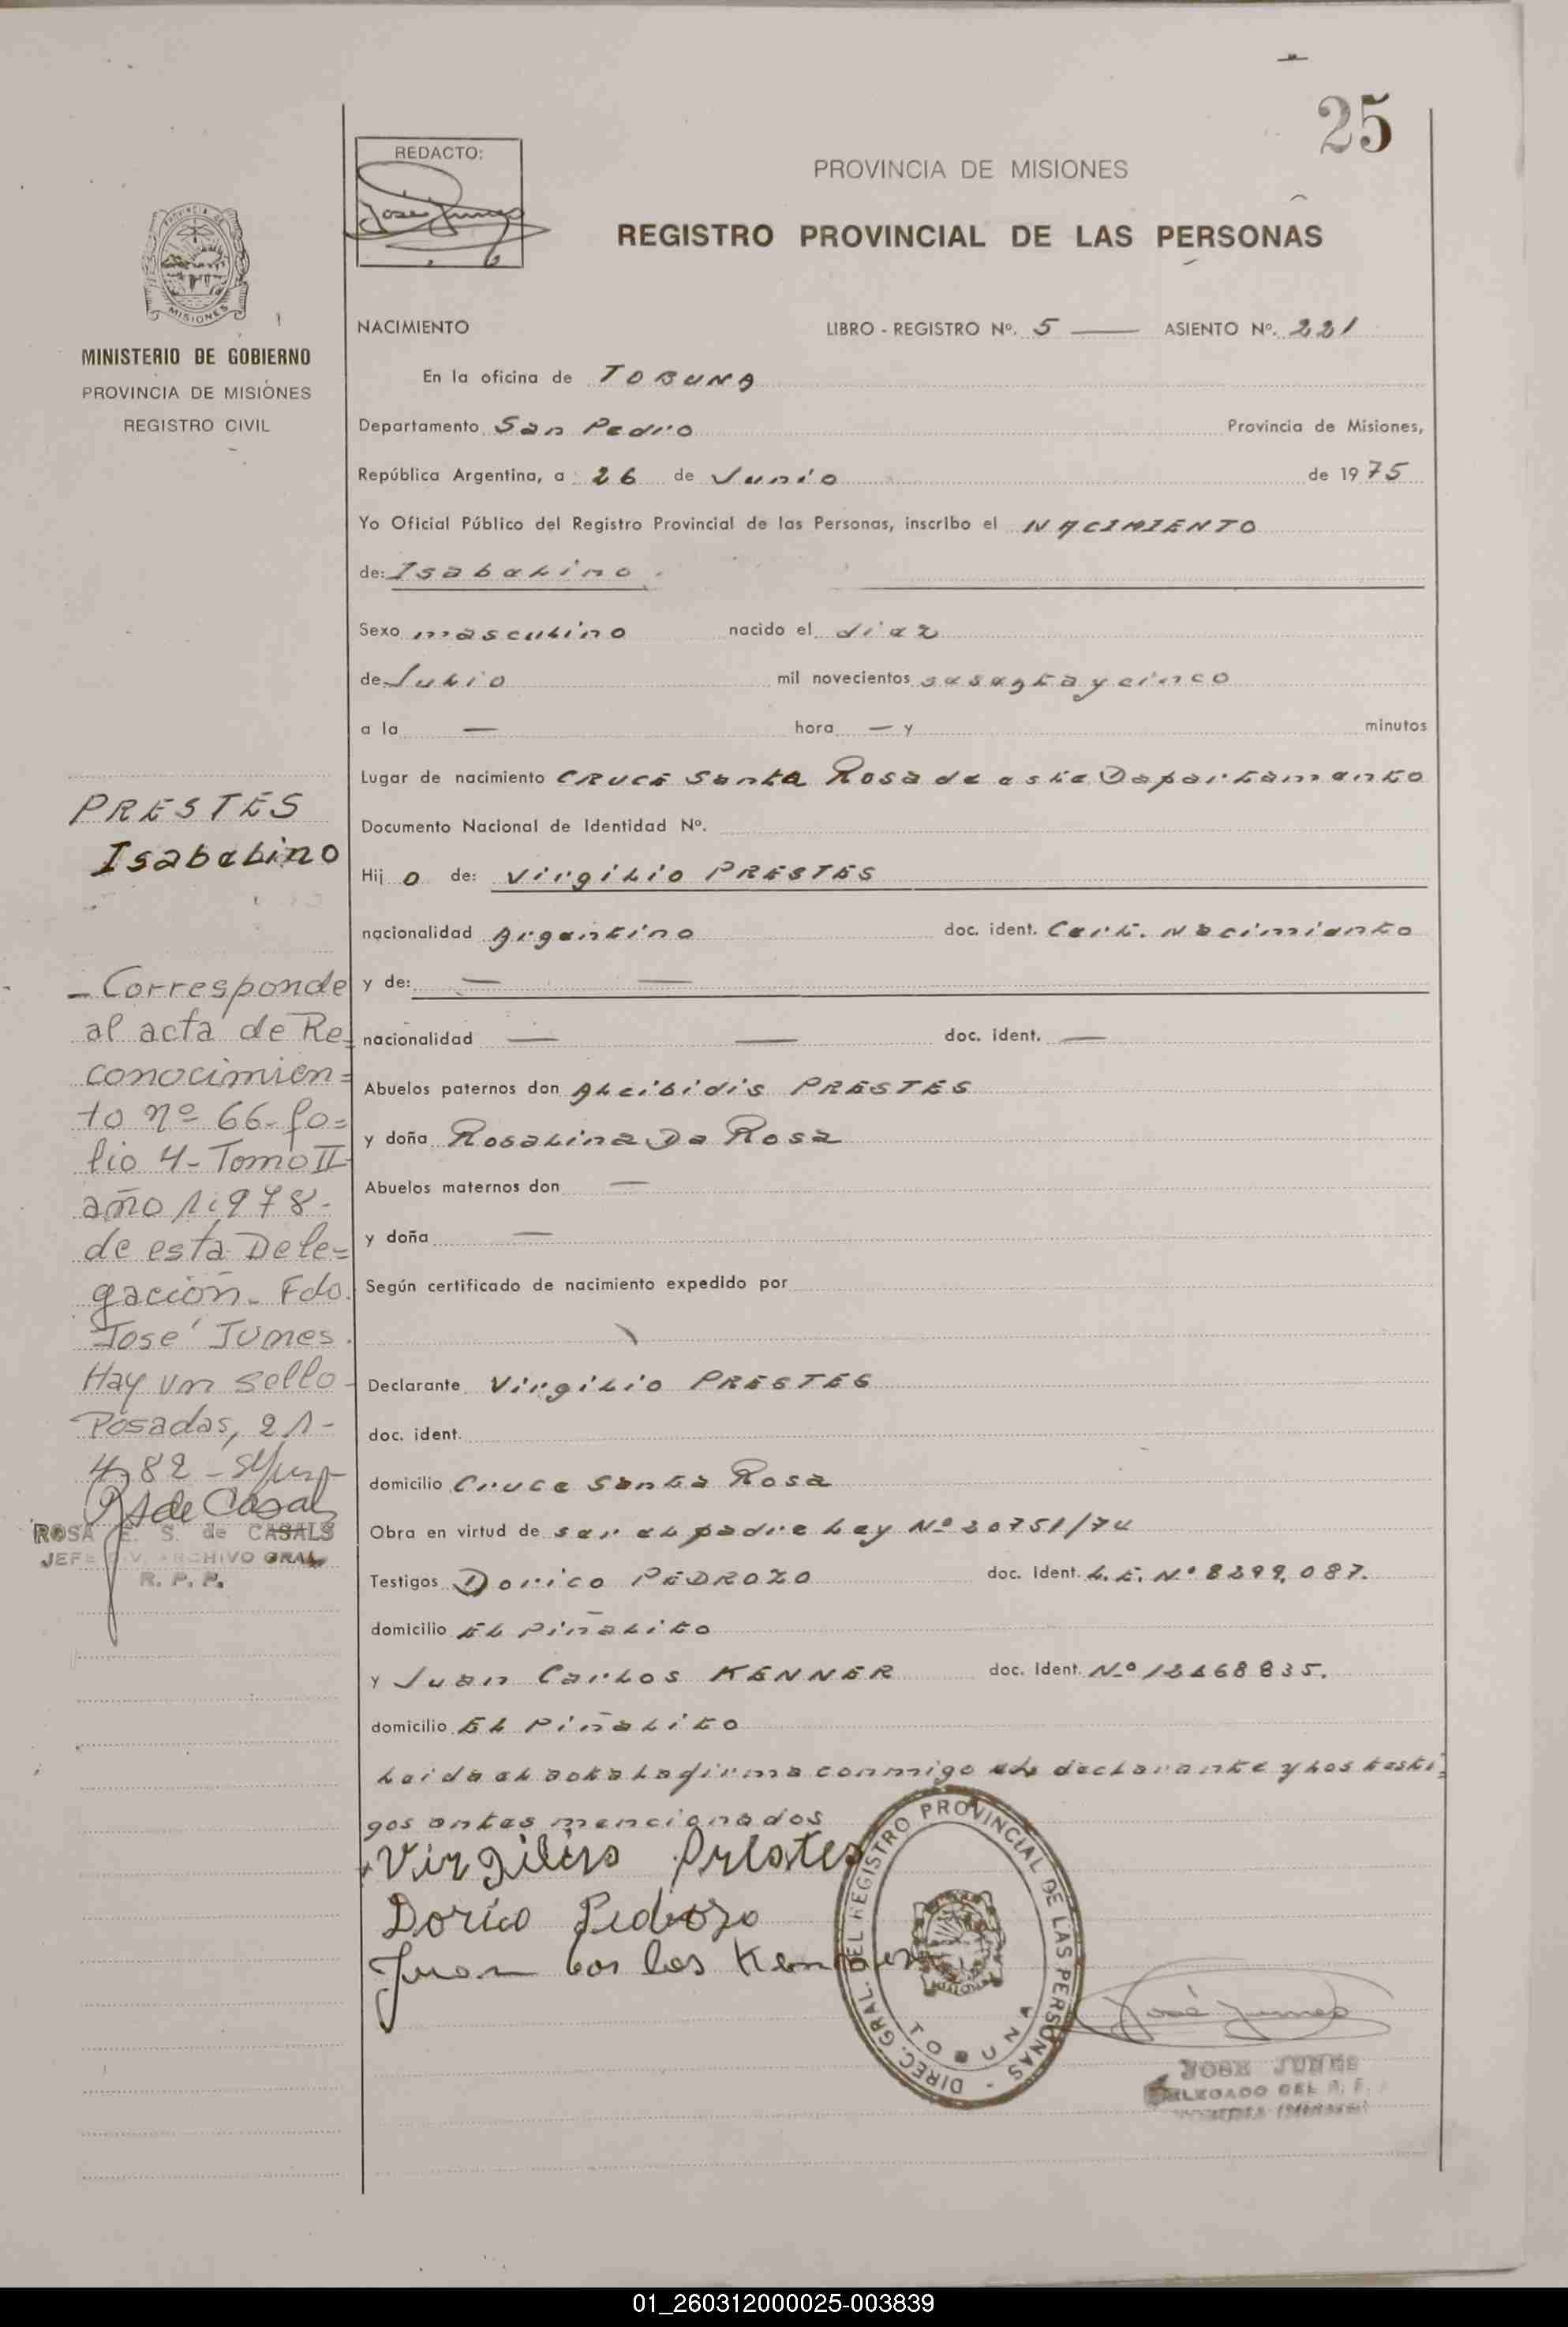 25
REDACTO:
José Junes
PROVINCIA DE MISIONES
REGISTRO PROVINCIAL DE LAS PERSONAS
PROVINCIA DE
MISIONES
MINISTERIO DE GOBIERNO
PROVINCIA DE MISIONES
REGISTRO CIVIL
NACIMIENTO LIBRO - REGISTRO Nº. 5 — ASIENTO Nº. 221
En la oficina de TOBUNA
Departamento San Pedro Provincia de Misiones,
República Argentina, a 26 de Junio de 1975
Yo Oficial Público del Registro Provincial de las Personas, inscribo el NACIMIENTO
de: Isabelino
Sexo masculino nacido el diez
de Julio mil novecientos sesenta y cinco
a la — hora — y minutos
Lugar de nacimiento CRUCE Santa Rosa de este Departamento
Documento Nacional de Identidad Nº.
Hij o de: Virgilio PRESTES
nacionalidad Argentino doc. ident. Cert. Nacimiento
y de: — —
nacionalidad — — doc. ident. —
Abuelos paternos don Alcibidis PRESTES
y doña Rosalina Da Rosa
Abuelos maternos don —
y doña —
Según certificado de nacimiento expedido por
Declarante Virgilio PRESTES
doc. ident.
domicilio Cruce Santa Rosa
Obra en virtud de ser el padre Ley Nº 20751/74
Testigos Dorico PEDROZO doc. Ident. L.E. Nº 8299.087.
domicilio El Piñalito
y Juan Carlos KENNER doc. Ident. Nº 12468835.
domicilio El Piñalito
Leida el acta la firma conmigo el declarante y los testi=
gos antes mencionados
Virgilio Prestes
Dorico Pedrozo
Juan Carlos Kenner
DIREC. GRAL. DEL REGISTRO PROVINCIAL DE LAS PERSONAS -
TOBUNA
José Junes
JOSE JUNES
DELEGADO DEL R. P.
PRESTES
Isabelino
- Corresponde
al acta de Re=
conocimien=
to nº 66- fo=
lio 4- Tomo II
año 1.978-
de esta Dele=
gación- Fdo.
José Junes.
Hay un sello-
Posadas, 21-
4-82 -
R S de Casals
ROSA E. S. de CASALS
JEFE DIV. ARCHIVO GRAL
R. P. P.
01_260312000025-003839